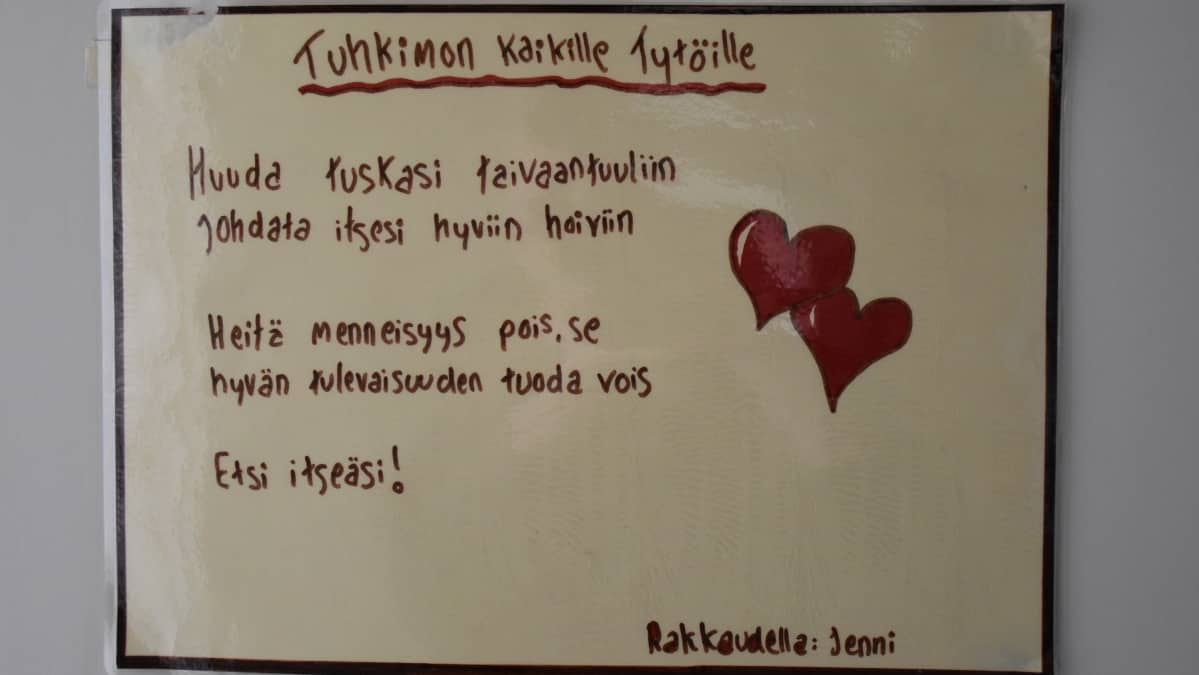 Tuhkimon kaikille Tytöille
Huuda tuskasi taivaantuuliin
Johdata itsesi hyviin hoiviin
Heitä menneisyys pois, se
hyvän tulevaisuuden tuoda vois
Etsi itseäsi!
Rakkaudella: Jenni